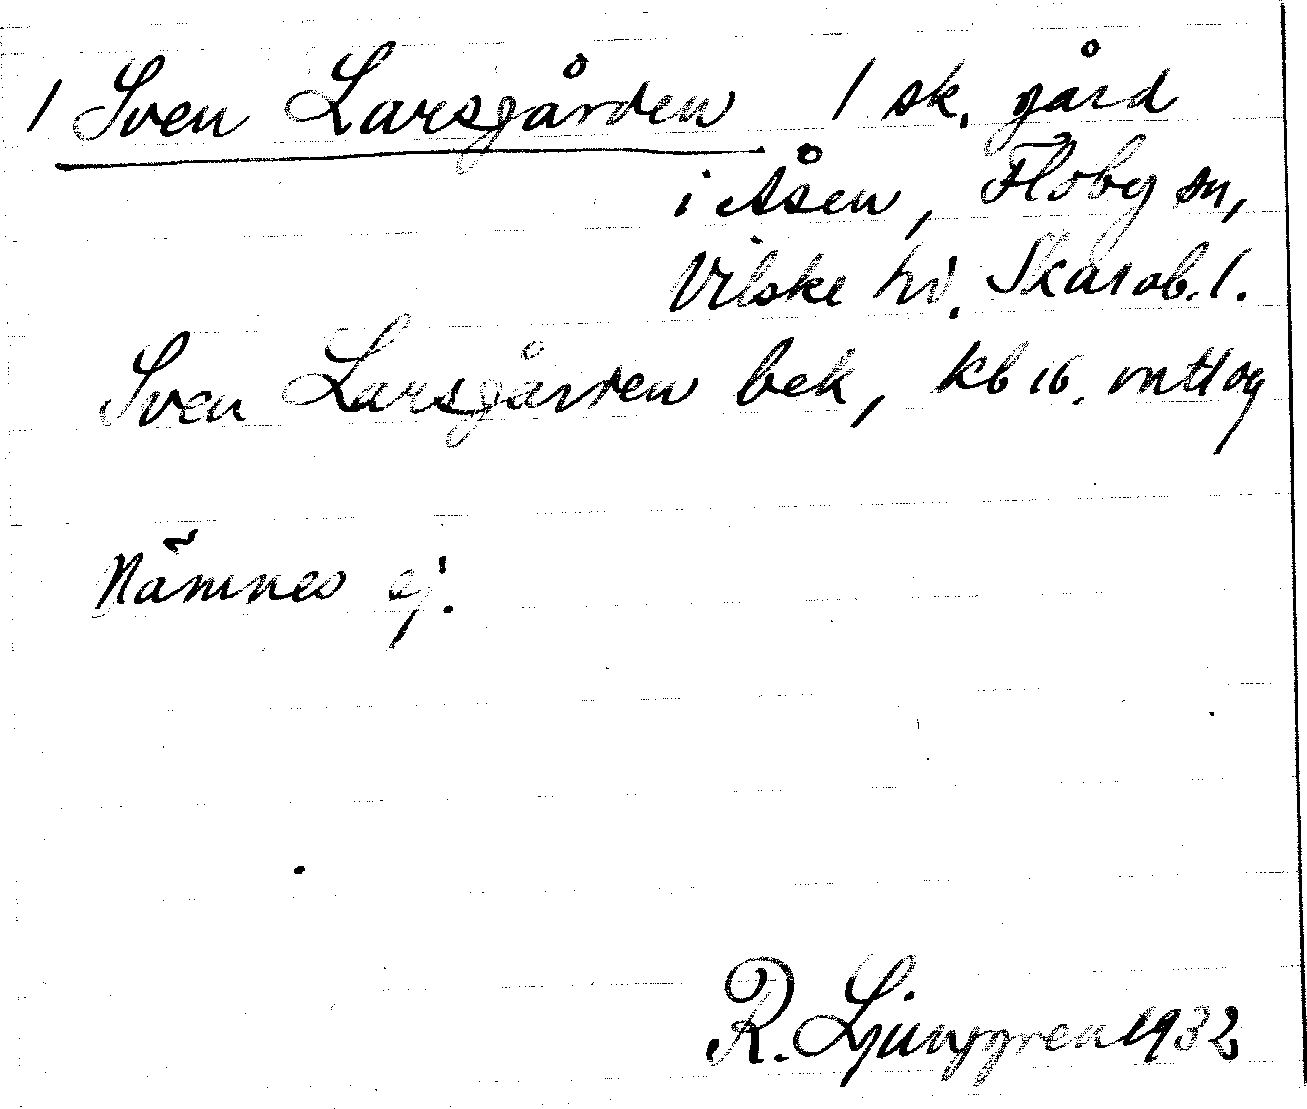 / Sven Larsgården / sk. gård
i Åsen, Floby sn,
Vilske hd. Skarab. l.
Sven Larsgården bek, kb 16.
Nämnes ej.
R. Ljunggren 1932